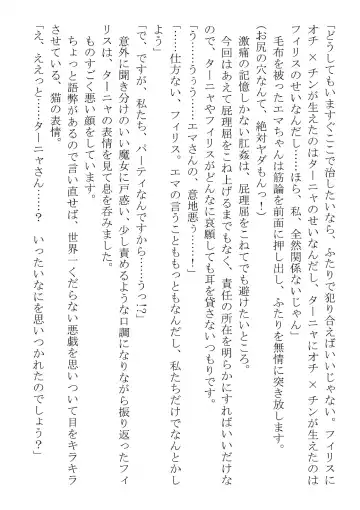 「どうしてもいますぐここで治したいなら、ふたりで犯り合えばいいじゃない。フィリスに
オチ×チンが生えたのはターニャのせいなんだし、ターニャにオチ×チンが生えたのは
フィリスのせいなんだし……ほら、私、全然関係ないじゃん」
毛布を被ったエマちゃんは筋論を前面に押し出し、ふたりを無情に突き放します。
(お尻の穴なんて、絶対ヤダもんっ!)
激痛の記憶しかない肛姦は、屁理屈をこねてでも避けたいところ。
今回はあえて屁理屈をこね上げるまでもなく、責任の所在を明らかにすればいいだけな
ので、ターニャやフィリスがどんなに哀願しても耳を貸さないつもりです。
「う……うぅ……エマさんの、意地悪ぅ……!」
「……仕方ない、フィリス。エマの言うことももっともなんだし、私たちだけでなんとかし
よう」
「で、ですが、私たち、パーティなんですから……うっ!?」
意外に聞き分けのいい魔女に戸惑い、少し責めるような口調になりながら振り返ったフィ
リスは、ターニャの表情を見て息を呑みました。
ものすごく悪い顔をしています。
ちょっと語弊があるので言い直せば、世界一くだらない悪戯を思いついて目をキラキラ
させている、猫の表情。
「え、ええっと……ターニャさん……? いったいなにを思いつかれたのでしょう?」